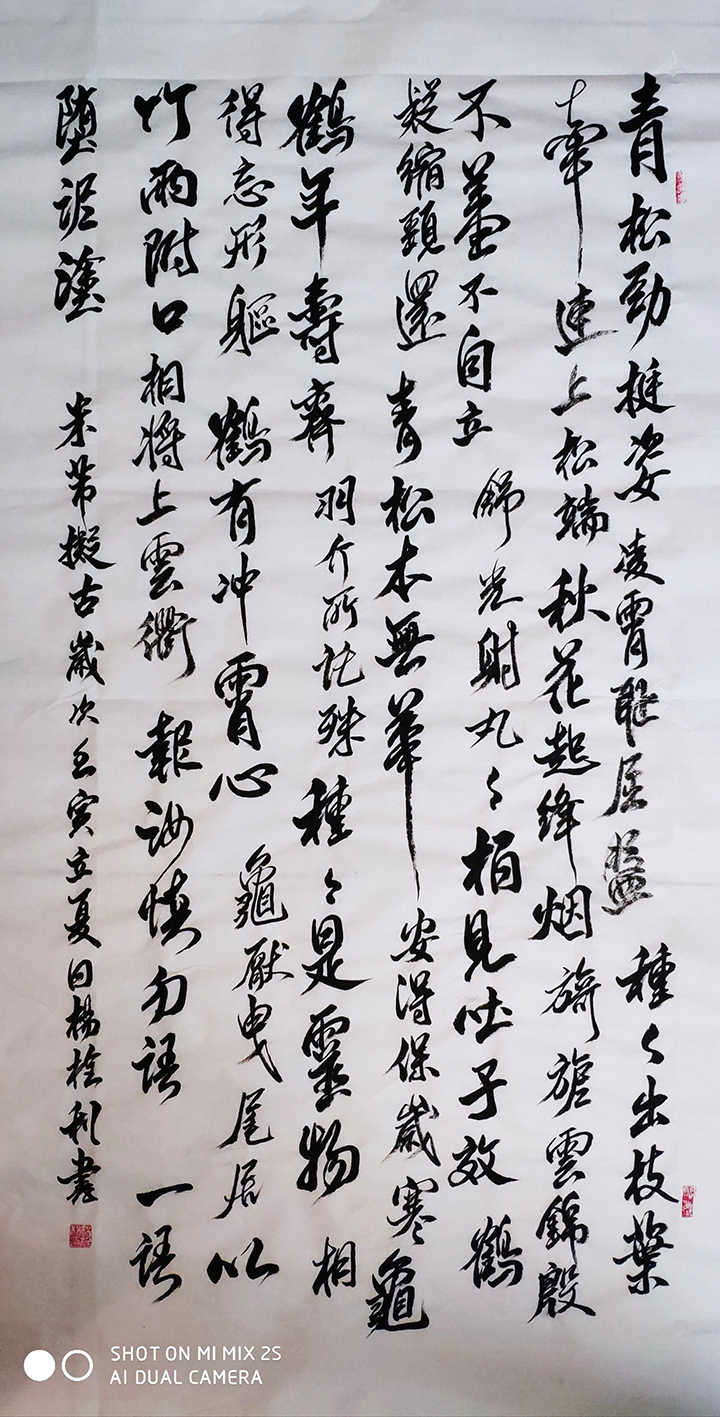 青松勁挺姿凌霄耻屈盤種々出枝葉
牽連上松端秋花起絳烟旖旎雲錦殷
不羞不自立舒光射丸々柏見吐子效鶴
疑縮頸還青松本無華安得保歲寒龜
鶴年壽齊羽介所託殊種々是靈物相
得忘形軀鶴有冲霄心龜厭曳尾居以
竹兩附口相將上雲衢報汝慎勿語一語
墮泥塗 米芾擬古歲次壬寅立夏日楊栓利書
SHOT ON MI MIX 2S
AI DUAL CAMERA